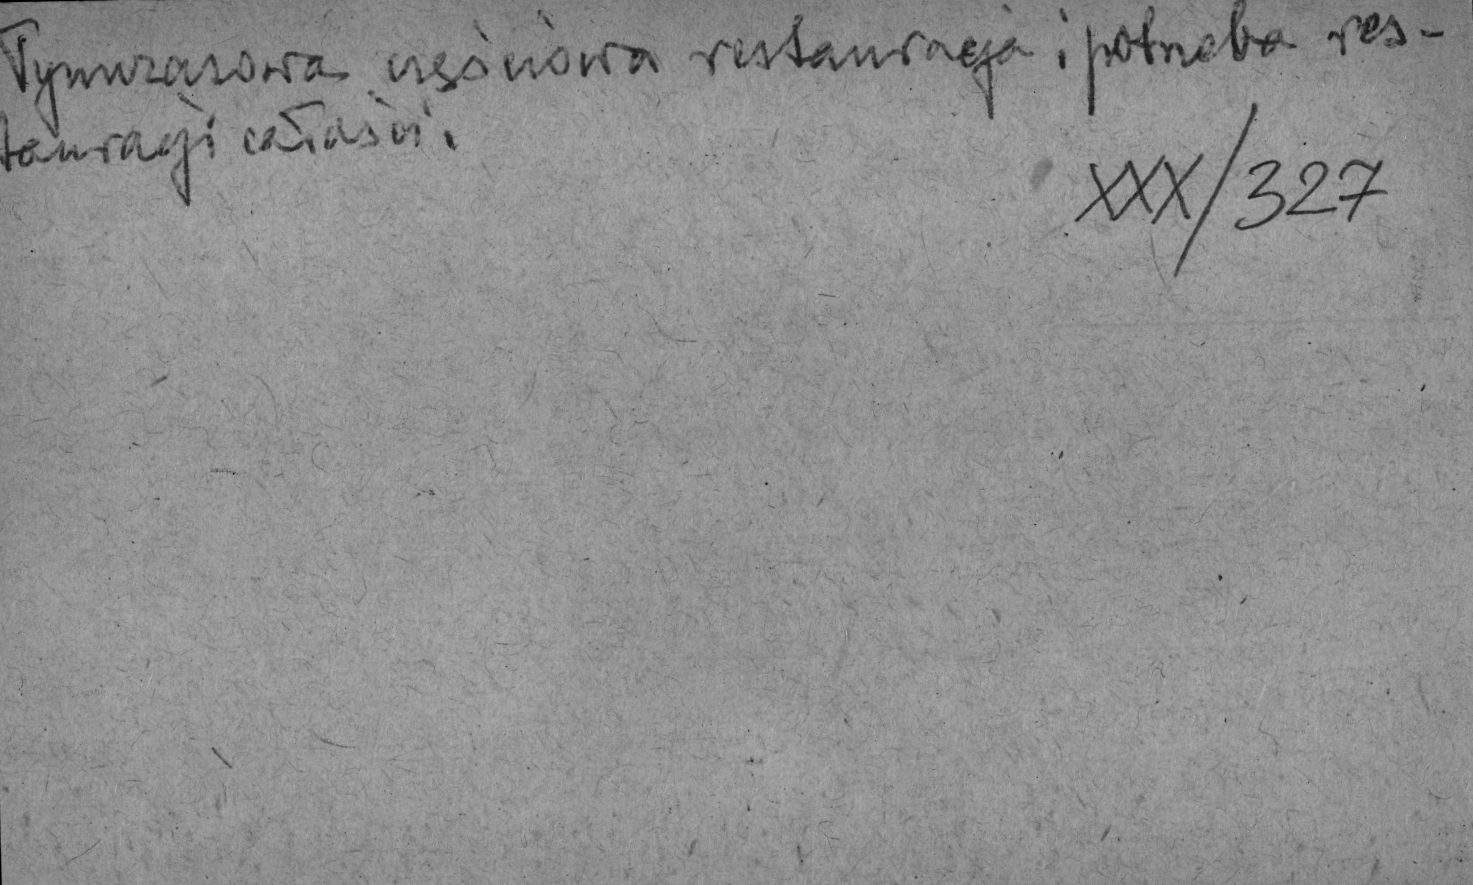 Tymczasowa częściowa restauracja i potrzeba res-
tauracji całości.
XXX/327